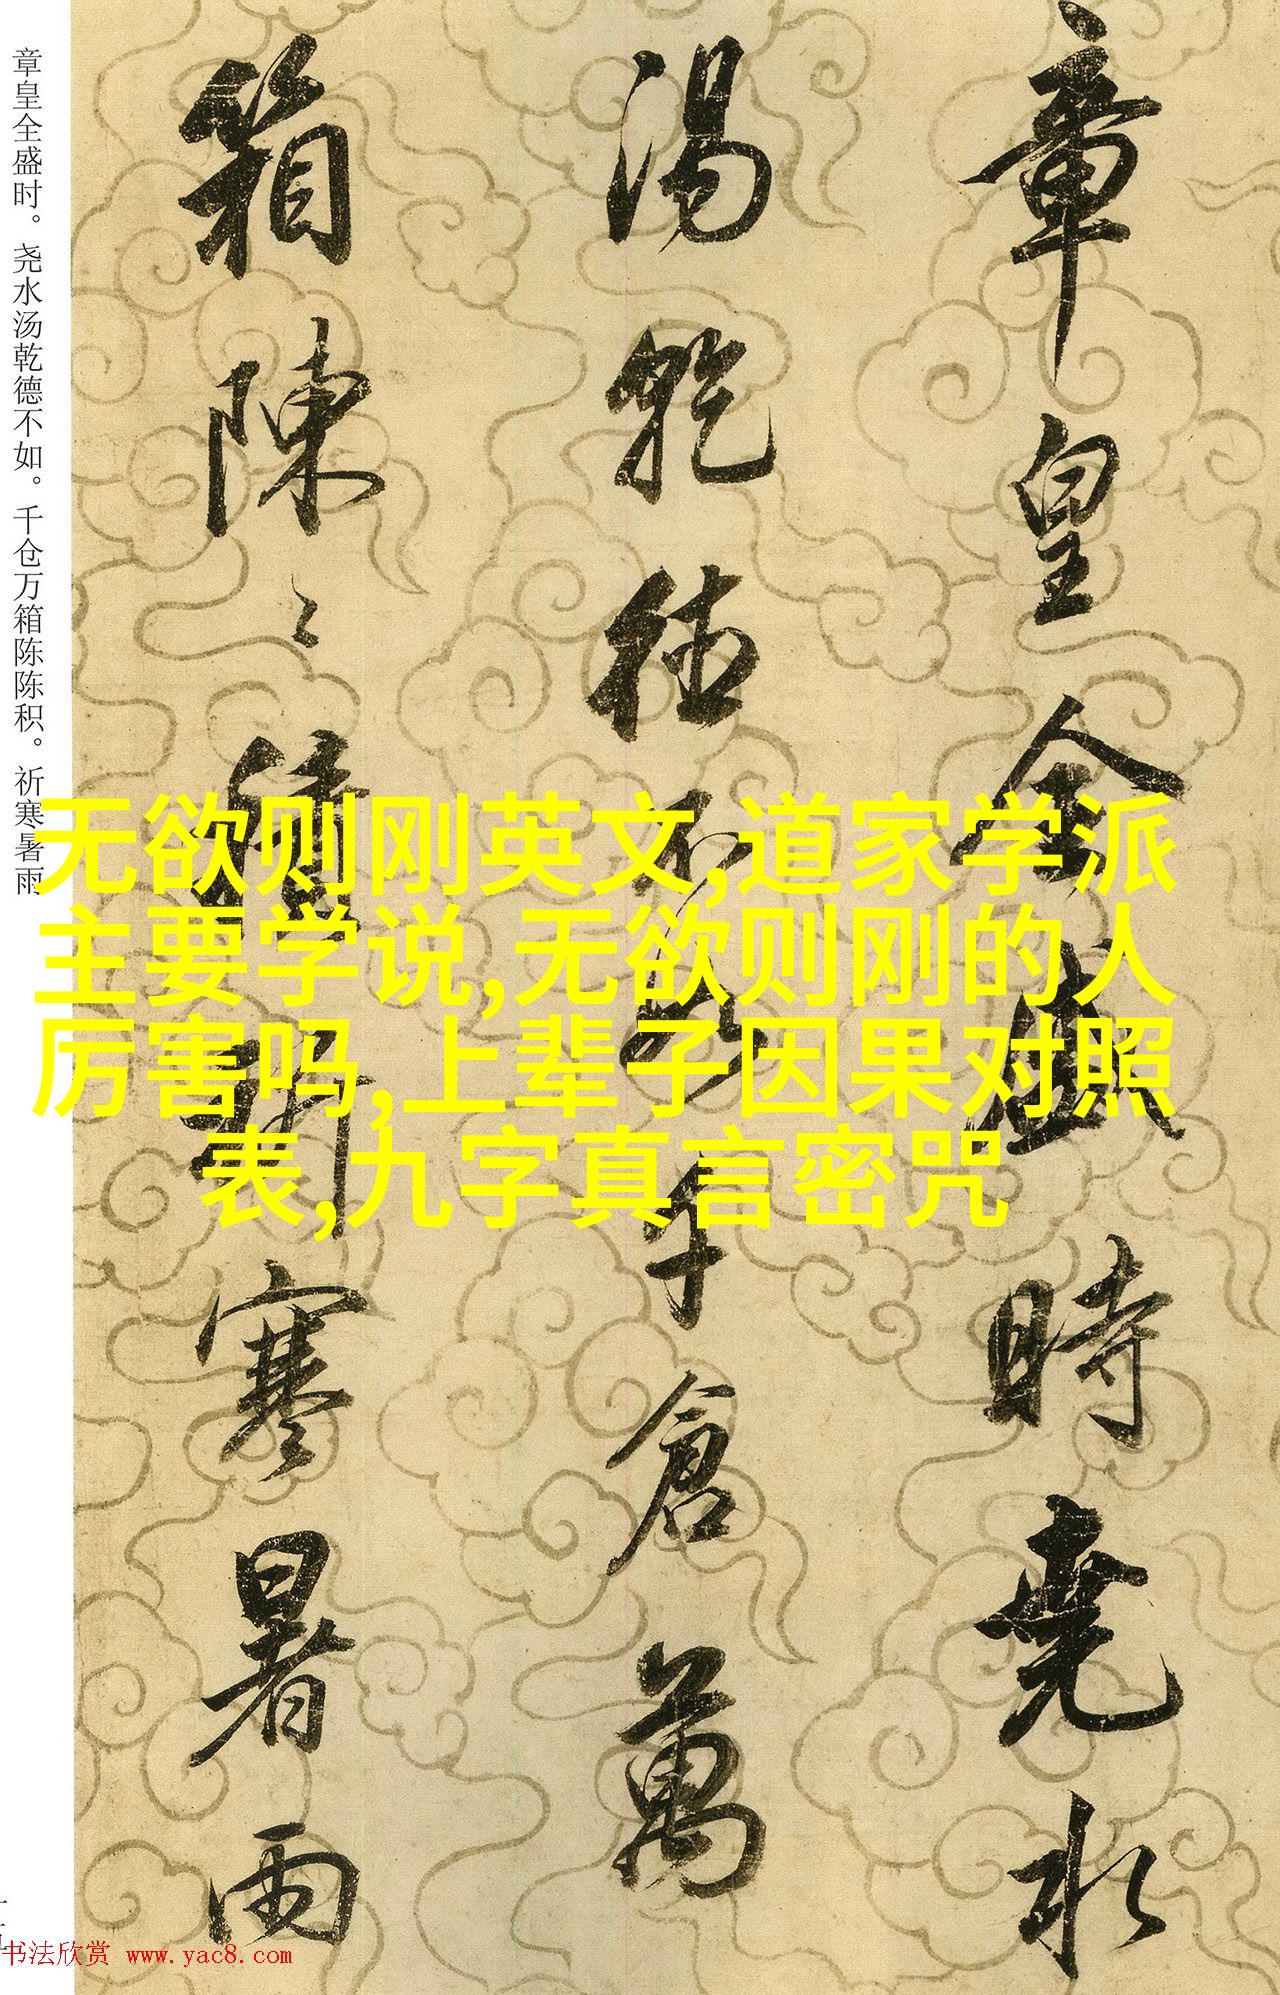 章皇全盛時堯水
湯乾德不如千倉萬
箱陳〻積祈寒暑雨
章皇全盛时。尧水汤乾德不如。千仓万箱陈陈积。祈寒暑雨
无欲则刚英文,道家学派
主要学说,无欲则刚的人
厉害吗,上辈子因果对照
表,九字真言密咒
书法欣赏 www.yac8.com